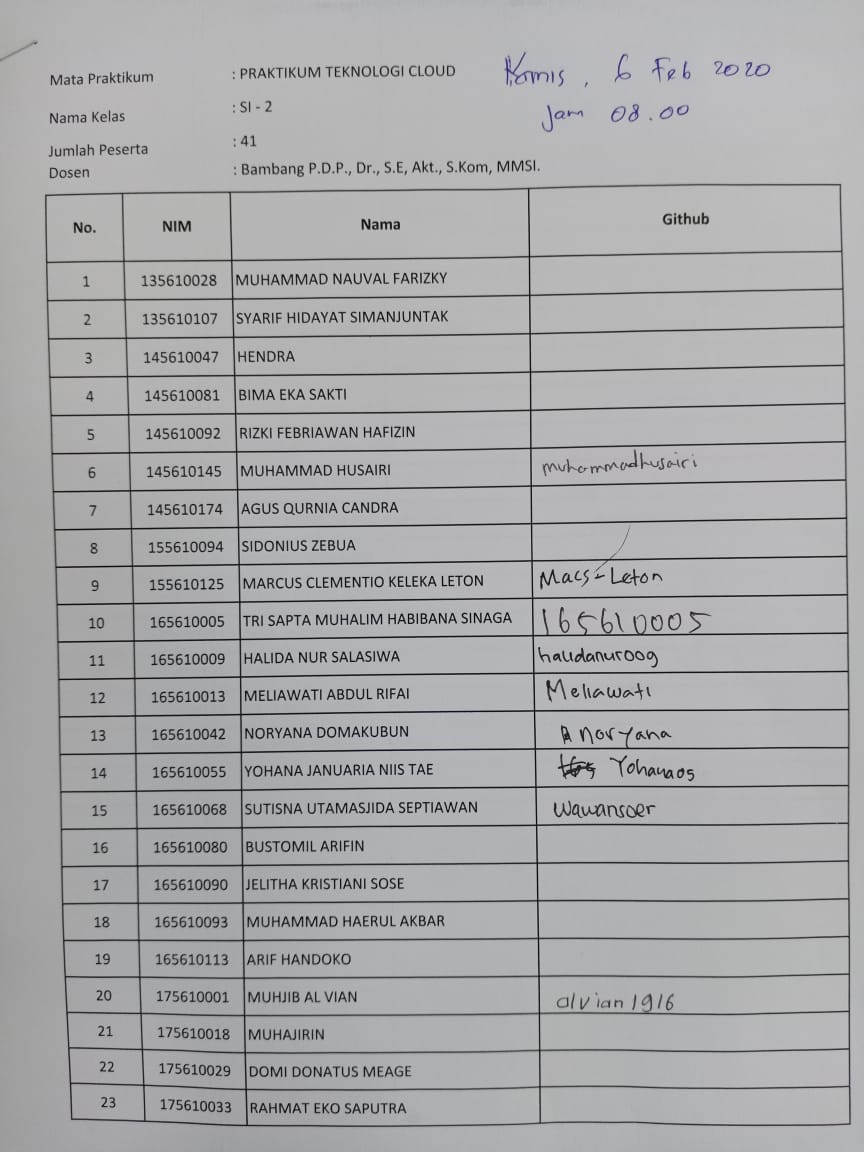 Mata Praktikum : PRAKTIKUM TEKNOLOGI CLOUD Kamis, 6 Feb 2020
Nama Kelas : SI - 2 Jam 08.00
Jumlah Peserta : 41
Dosen : Bambang P.D.P., Dr., S.E, Akt., S.Kom, MMSI.
No. NIM Nama Github
1 135610028 MUHAMMAD NAUVAL FARIZKY
2 135610107 SYARIF HIDAYAT SIMANJUNTAK
3 145610047 HENDRA
4 145610081 BIMA EKA SAKTI
5 145610092 RIZKI FEBRIAWAN HAFIZIN
6 145610145 MUHAMMAD HUSAIRI muhammadhusairi
7 145610174 AGUS QURNIA CANDRA
8 155610094 SIDONIUS ZEBUA
9 155610125 MARCUS CLEMENTIO KELEKA LETON Macs-Leton
10 165610005 TRI SAPTA MUHALIM HABIBANA SINAGA 165610005
11 165610009 HALIDA NUR SALASIWA halidanur009
12 165610013 MELIAWATI ABDUL RIFAI Meliawati
13 165610042 NORYANA DOMAKUBUN noryana
14 165610055 YOHANA JANUARIA NIIS TAE Yohana05
15 165610068 SUTISNA UTAMASJIDA SEPTIAWAN wawansoer
16 165610080 BUSTOMIL ARIFIN
17 165610090 JELITHA KRISTIANI SOSE
18 165610093 MUHAMMAD HAERUL AKBAR
19 165610113 ARIF HANDOKO
20 175610001 MUHJIB AL VIAN alvian1916
21 175610018 MUHAJIRIN
22 175610029 DOMI DONATUS MEAGE
23 175610033 RAHMAT EKO SAPUTRA